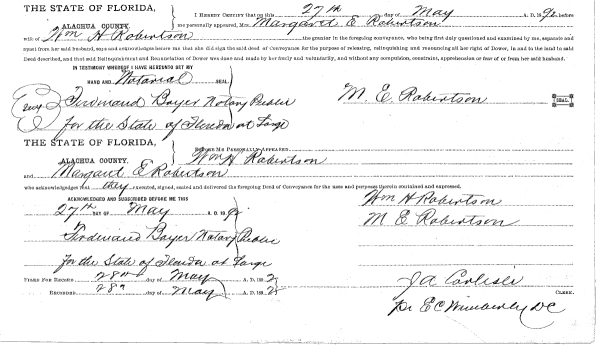 THE STATE OF FLORIDA, I HEREBY CERTIFY that on this 27th day of May A. D. 1892 before
ALACHUA COUNTY. me personally appeared, Mrs. Margaret E Robertson
wife of Wm H Robertson the grantor in the foregoing conveyance, who being first duly questioned and examined by me, separate and
apart from her said husband, says and acknowledges before me that she did sign the said deed of Conveyance for the purpose of releasing, relinquishing and renouncing all her right of Dower, in and to the land in said
Deed described, and that said Relinquishment and Renunciation of Dower was done and made by her freely and voluntarily, and without any compulsion, constraint, apprehension or fear of or from her said husband.
IN TESTIMONY WHEREOF I HAVE HEREUNTO SET MY
HAND AND Notarial SEAL
Ferdinand Bayer Notary Public M. E. Robertson SEAL.
for the State of Florida at Large
THE STATE OF FLORIDA, BEFORE ME PERSONALLY APPEARED
ALACHUA COUNTY. Wm H Robertson
and Margaret E Robertson
who acknowledged that they executed, signed, sealed and delivered the foregoing Deed of Conveyance for the uses and purposes therein contained and expressed.
ACKNOWLEDGED AND SUBSCRIBED BEFORE ME THIS Wm H Robertson
27th DAY OF May A. D. 1892 M E Robertson
Ferdinand Bayer Notary Public
for the State of Florida at Large
FILED FOR RECORD 28th day of May A. D. 1892 J A Carlisle CLERK.
RECORDED 28th day of May A. D. 1892 Pr E C Wimberly DC